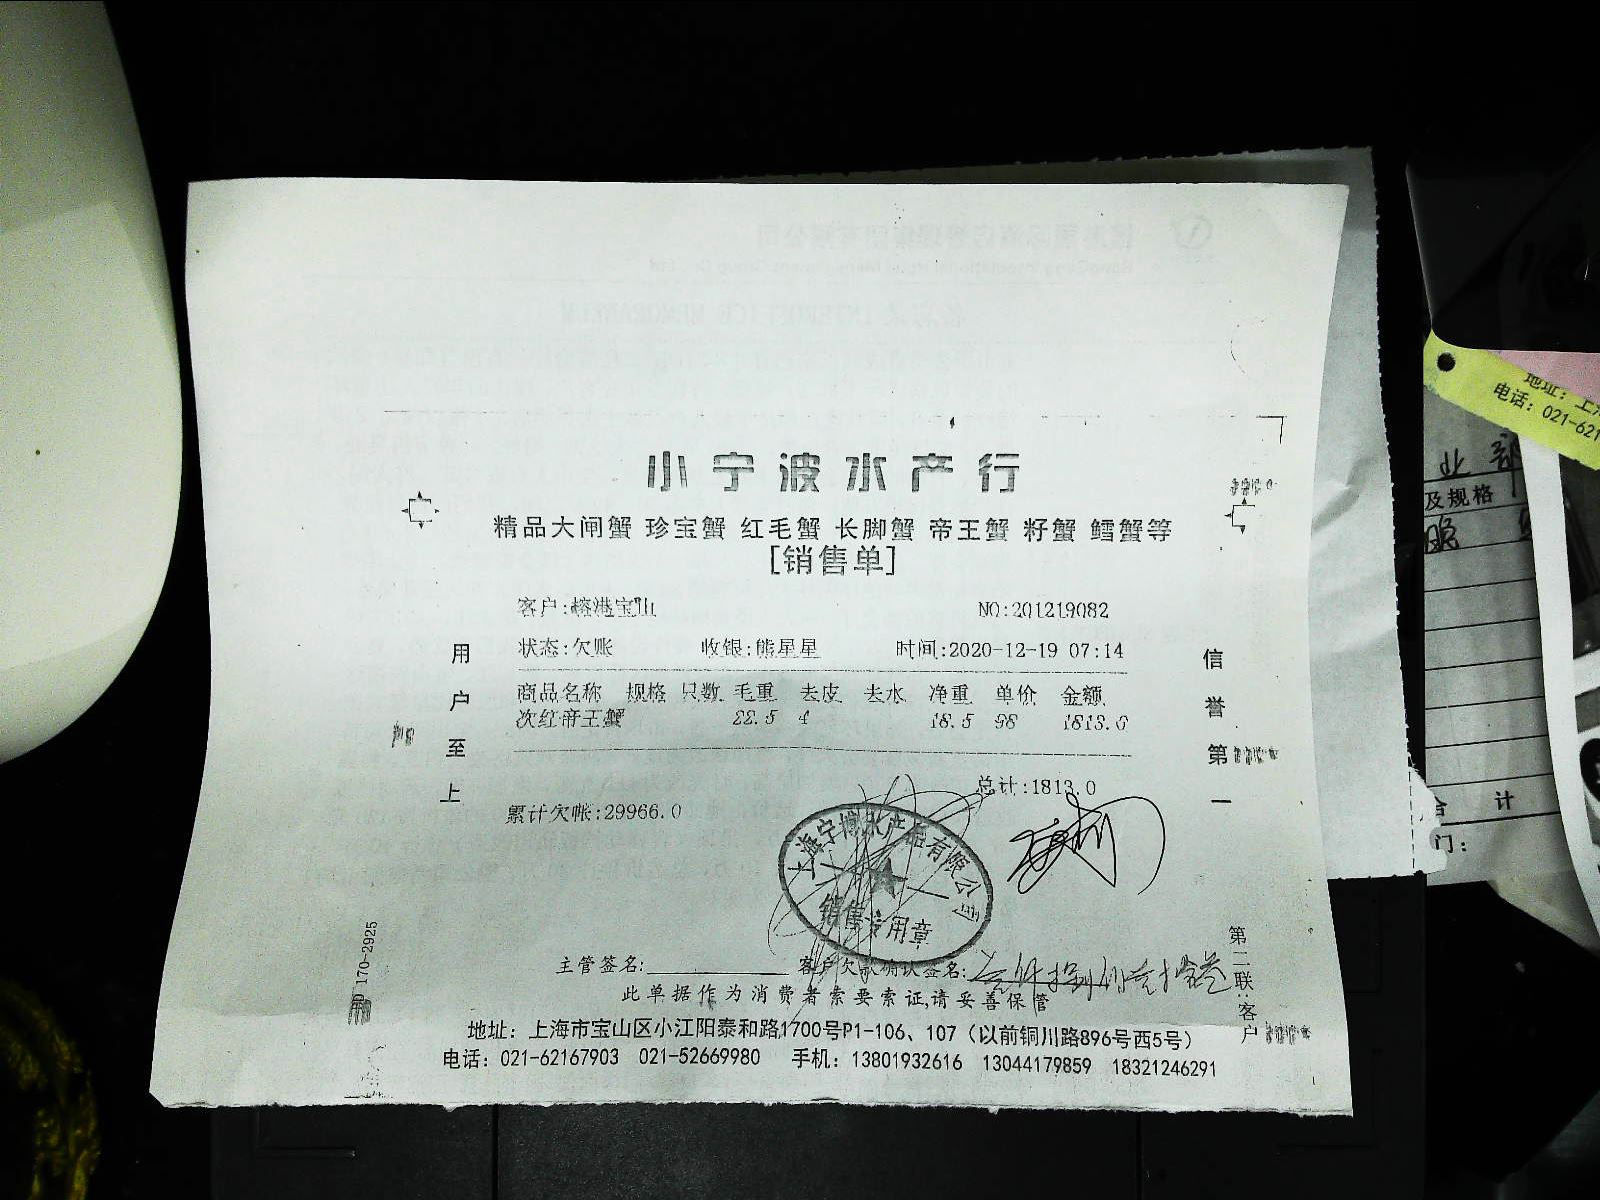 小宁波水产行
精品大闸蟹 珍宝蟹 红毛蟹 长脚蟹 帝王蟹 籽蟹 鳕蟹等
[销售单]
客户:榕港宝山 NO:201219082
状态:欠账 收银:熊星星 时间:2020-12-19 07:14
商品名称 规格 只数 毛重 去皮 去水 净重 单价 金额
次红帝王蟹 22.5 4 18.5 98 1813.0
总计:1813.0
累计欠帐:29966.0
用户至上
信誉第一
上海宁博水产品有限公司
销售专用章
主管签名: 客户欠款确认签名:
此单据作为消费者索要索证,请妥善保管
地址: 上海市宝山区小江阳泰和路1700号P1-106、107 (以前铜川路896号西5号)
电话: 021-62167903 021-52669980 手机: 13801932616 13044179859 18321246291
第二联:客户
170-2925
地址: 上
电话: 021-621
业部
及规格
合计
门: